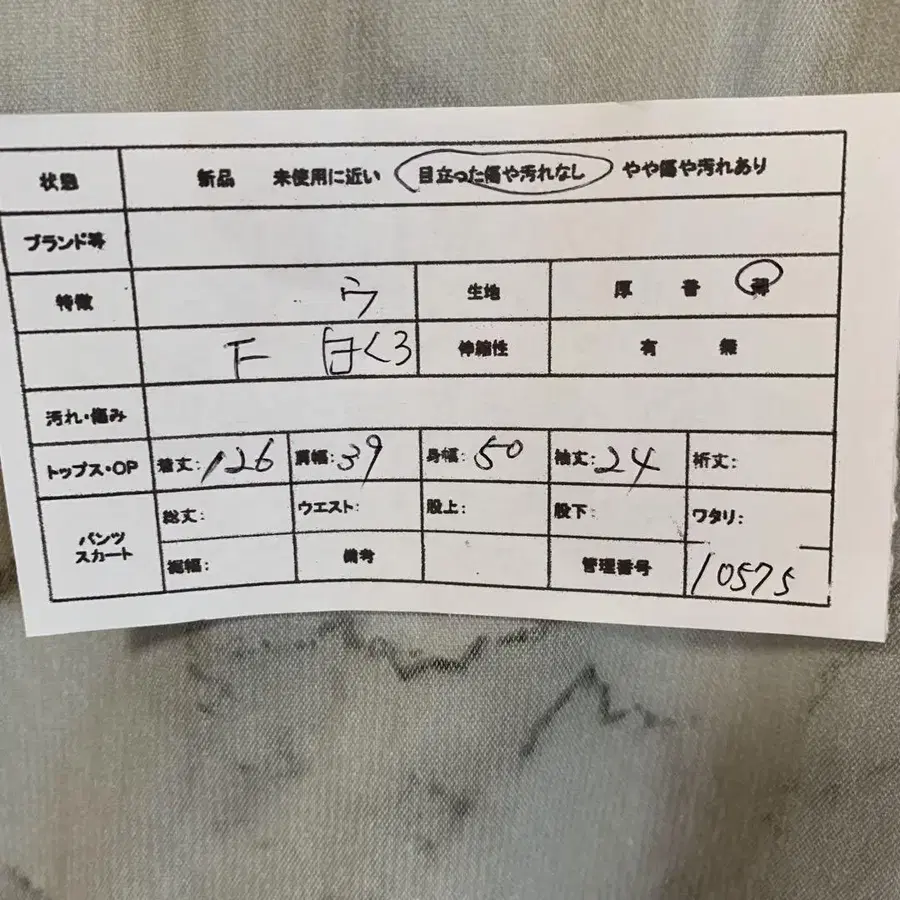 状態 新品 未使用に近い 目立った傷や汚れなし やや傷や汚れあり
ブランド等
特徴 ウ 生地 厚 普 薄
下 白く3 伸縮性 有 無
汚れ・傷み
トップス・OP 着丈:126 肩幅:39 身幅:50 袖丈:24 裄丈:
パンツ スカート 総丈: ウエスト: 股上: 股下: ワタリ:
裾幅: 備考 管理番号 10575